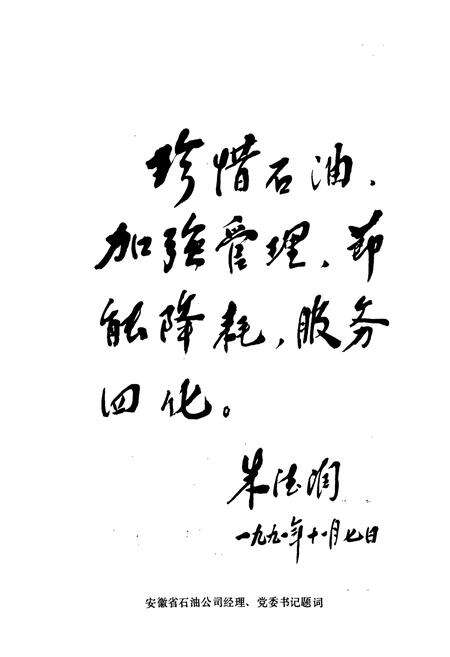 珍惜石油、
加強管理、节
能降耗，服务
四化。
朱德润
一九九一年十一月七日
安徽省石油公司经理、党委书记题词